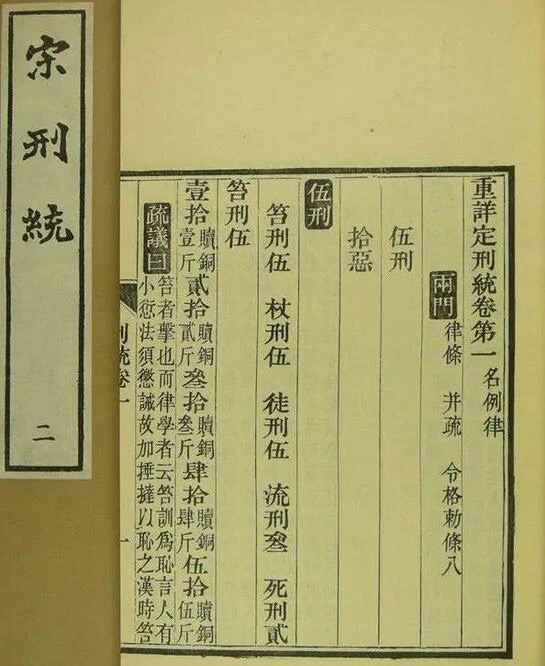 宋刑統
二
重詳定刑統卷第一 名例律
兩門 律條 并疏 令格勅條八
伍刑
拾惡
伍刑
笞刑伍 杖刑伍 徒刑伍 流刑叄 死刑貳
笞刑伍
壹拾 贖銅壹斤 貳拾 贖銅貳斤 叄拾 贖銅叄斤 肆拾 贖銅肆斤 伍拾 贖銅伍斤
疏議曰 笞者擊也而律學者云笞訓爲恥言人有
小愆法須懲誡故加捶撻以恥之漢時笞
刑統卷一
一